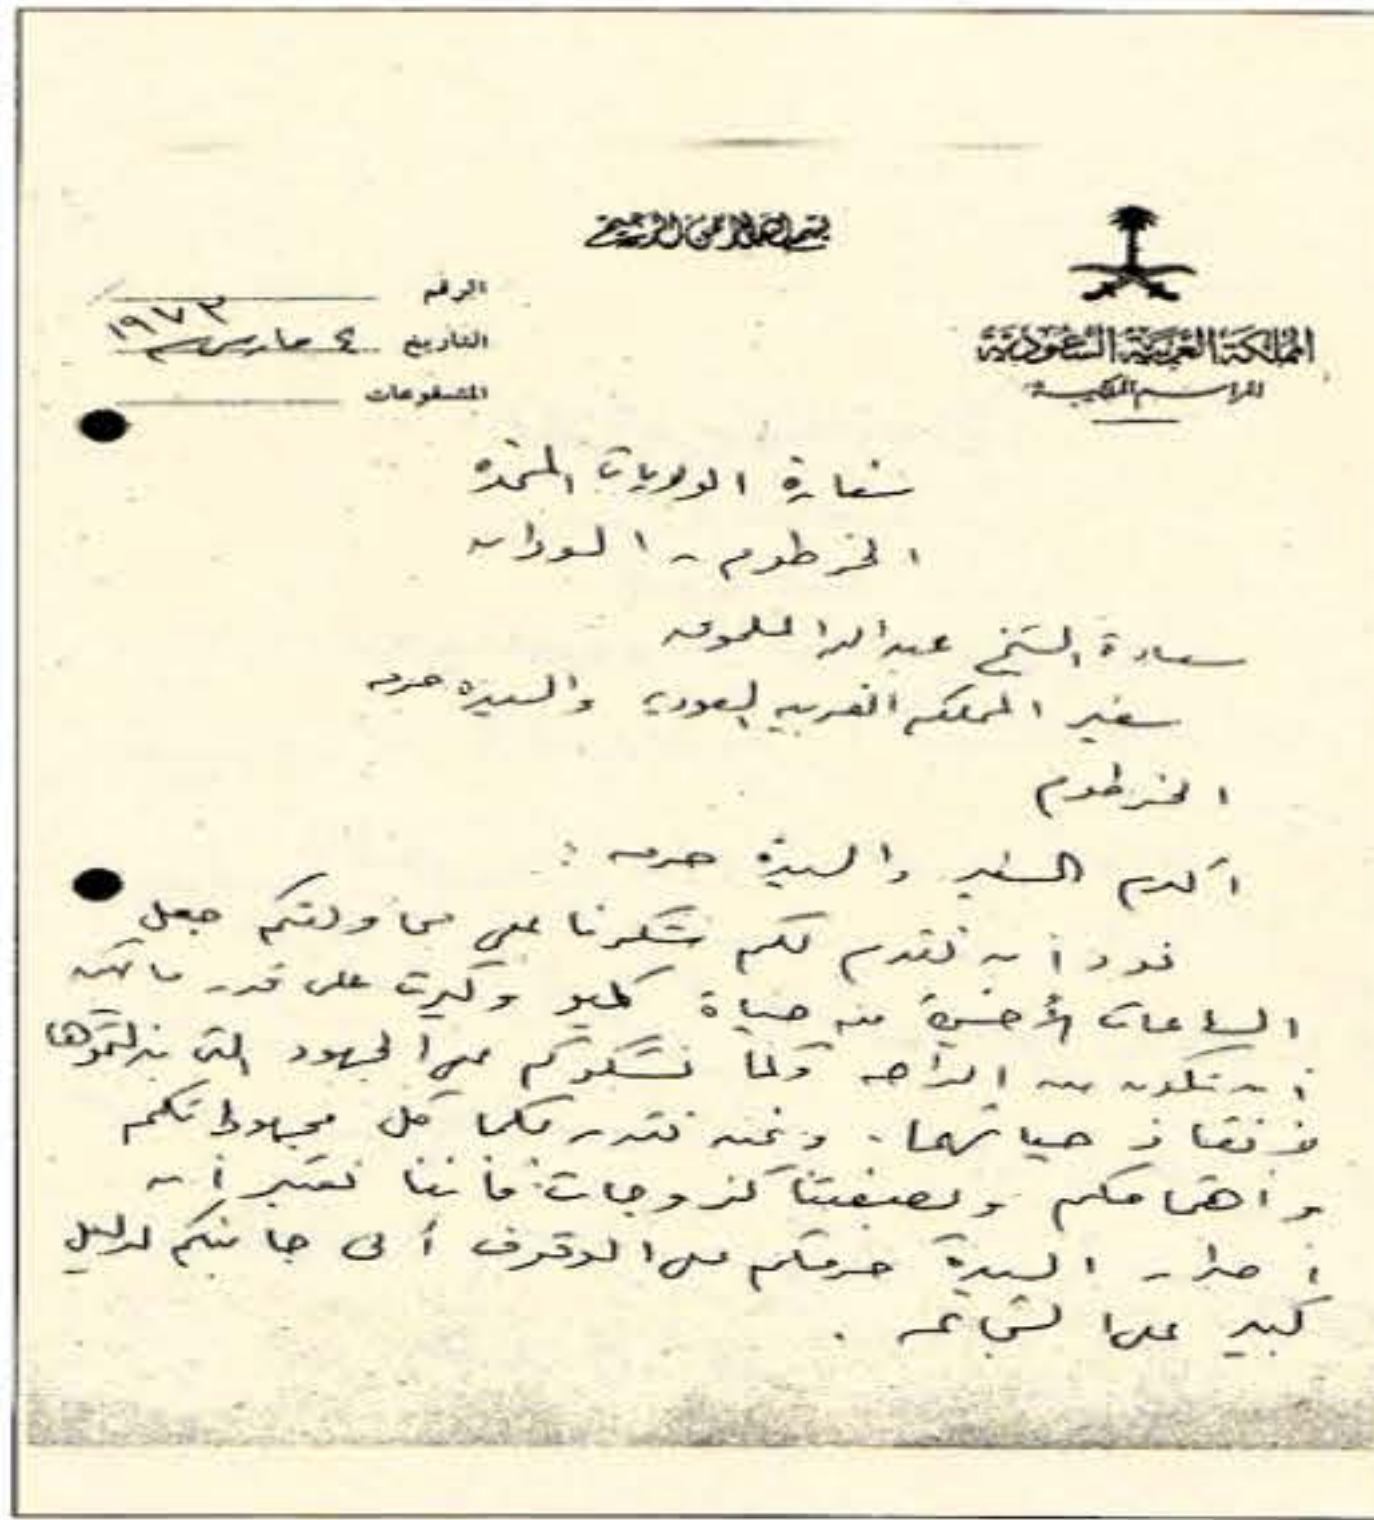 بسم الله الرحمن الرحيم
المملكة العربية السعودية
المراسم الملكية
الرقم
التاريخ ٤ مارس ١٩٧٣
المشفوعات
سفارة الولايات المتحده
الخرطوم - السودان
سعادة الشيخ عبدالله الملحوق
سفير المملكه العربيه السعوديه والسيده حرمه
الخرطوم
أكرم السفير والسيدة حرمه :
نود أن نقدم لكم شكرنا على محاولتكم جعل
الساعات الأخيرة من حياة كليو وكيرت على قدر ما يمكن
أن تكون من الراحه وكما نشكركم على الجهود التي بذلتموها
لانقاذ حياتهما. ونحن نقدر لكما كل مجهوداتكم
واهتمامكم وبصفتنا كزوجات فأننا نعتبر أن
أصرار السيدة حرمكم على الوقوف ألى جانبكم لدليل
كبير على الشجاعه .